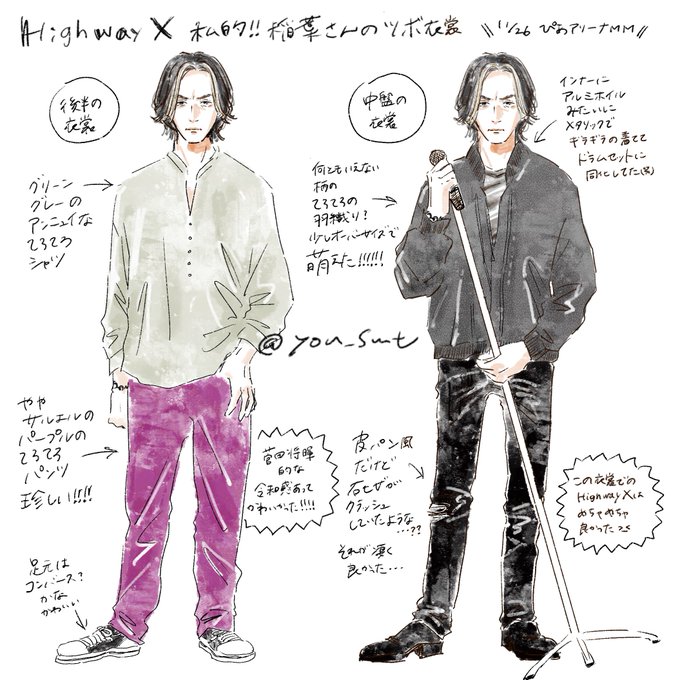 Highway X 私的!! 稲葉さんのツボ衣裳 \\ 11/26 ぴあアリーナMM //
後半の
衣裳
グリーン
グレーの
アンニュイな
てろてろ
シャツ
やや
サルエルの
パープルの
てろてろ
パンツ
珍しい!!!!
菅田将暉
的な
令和感あって
かわいかった!!!!
足元は
コンバース?
かな
かわいい
@you_smt
中盤の
衣裳
インナーに
アルミホイル
みたいに
メタリックで
ギラギラの着てて
ドラムセットに
同化してた(笑)
何ともいえない
柄の
てろてろの
羽織り?
少しオーバーサイズで
萌えた!!!!!!
皮パン風
だけど
右ヒザが
クラッシュ
していたような
...??
それが凄く
良かった...
この衣装での
Highway Xは
めちゃめちゃ
良かった